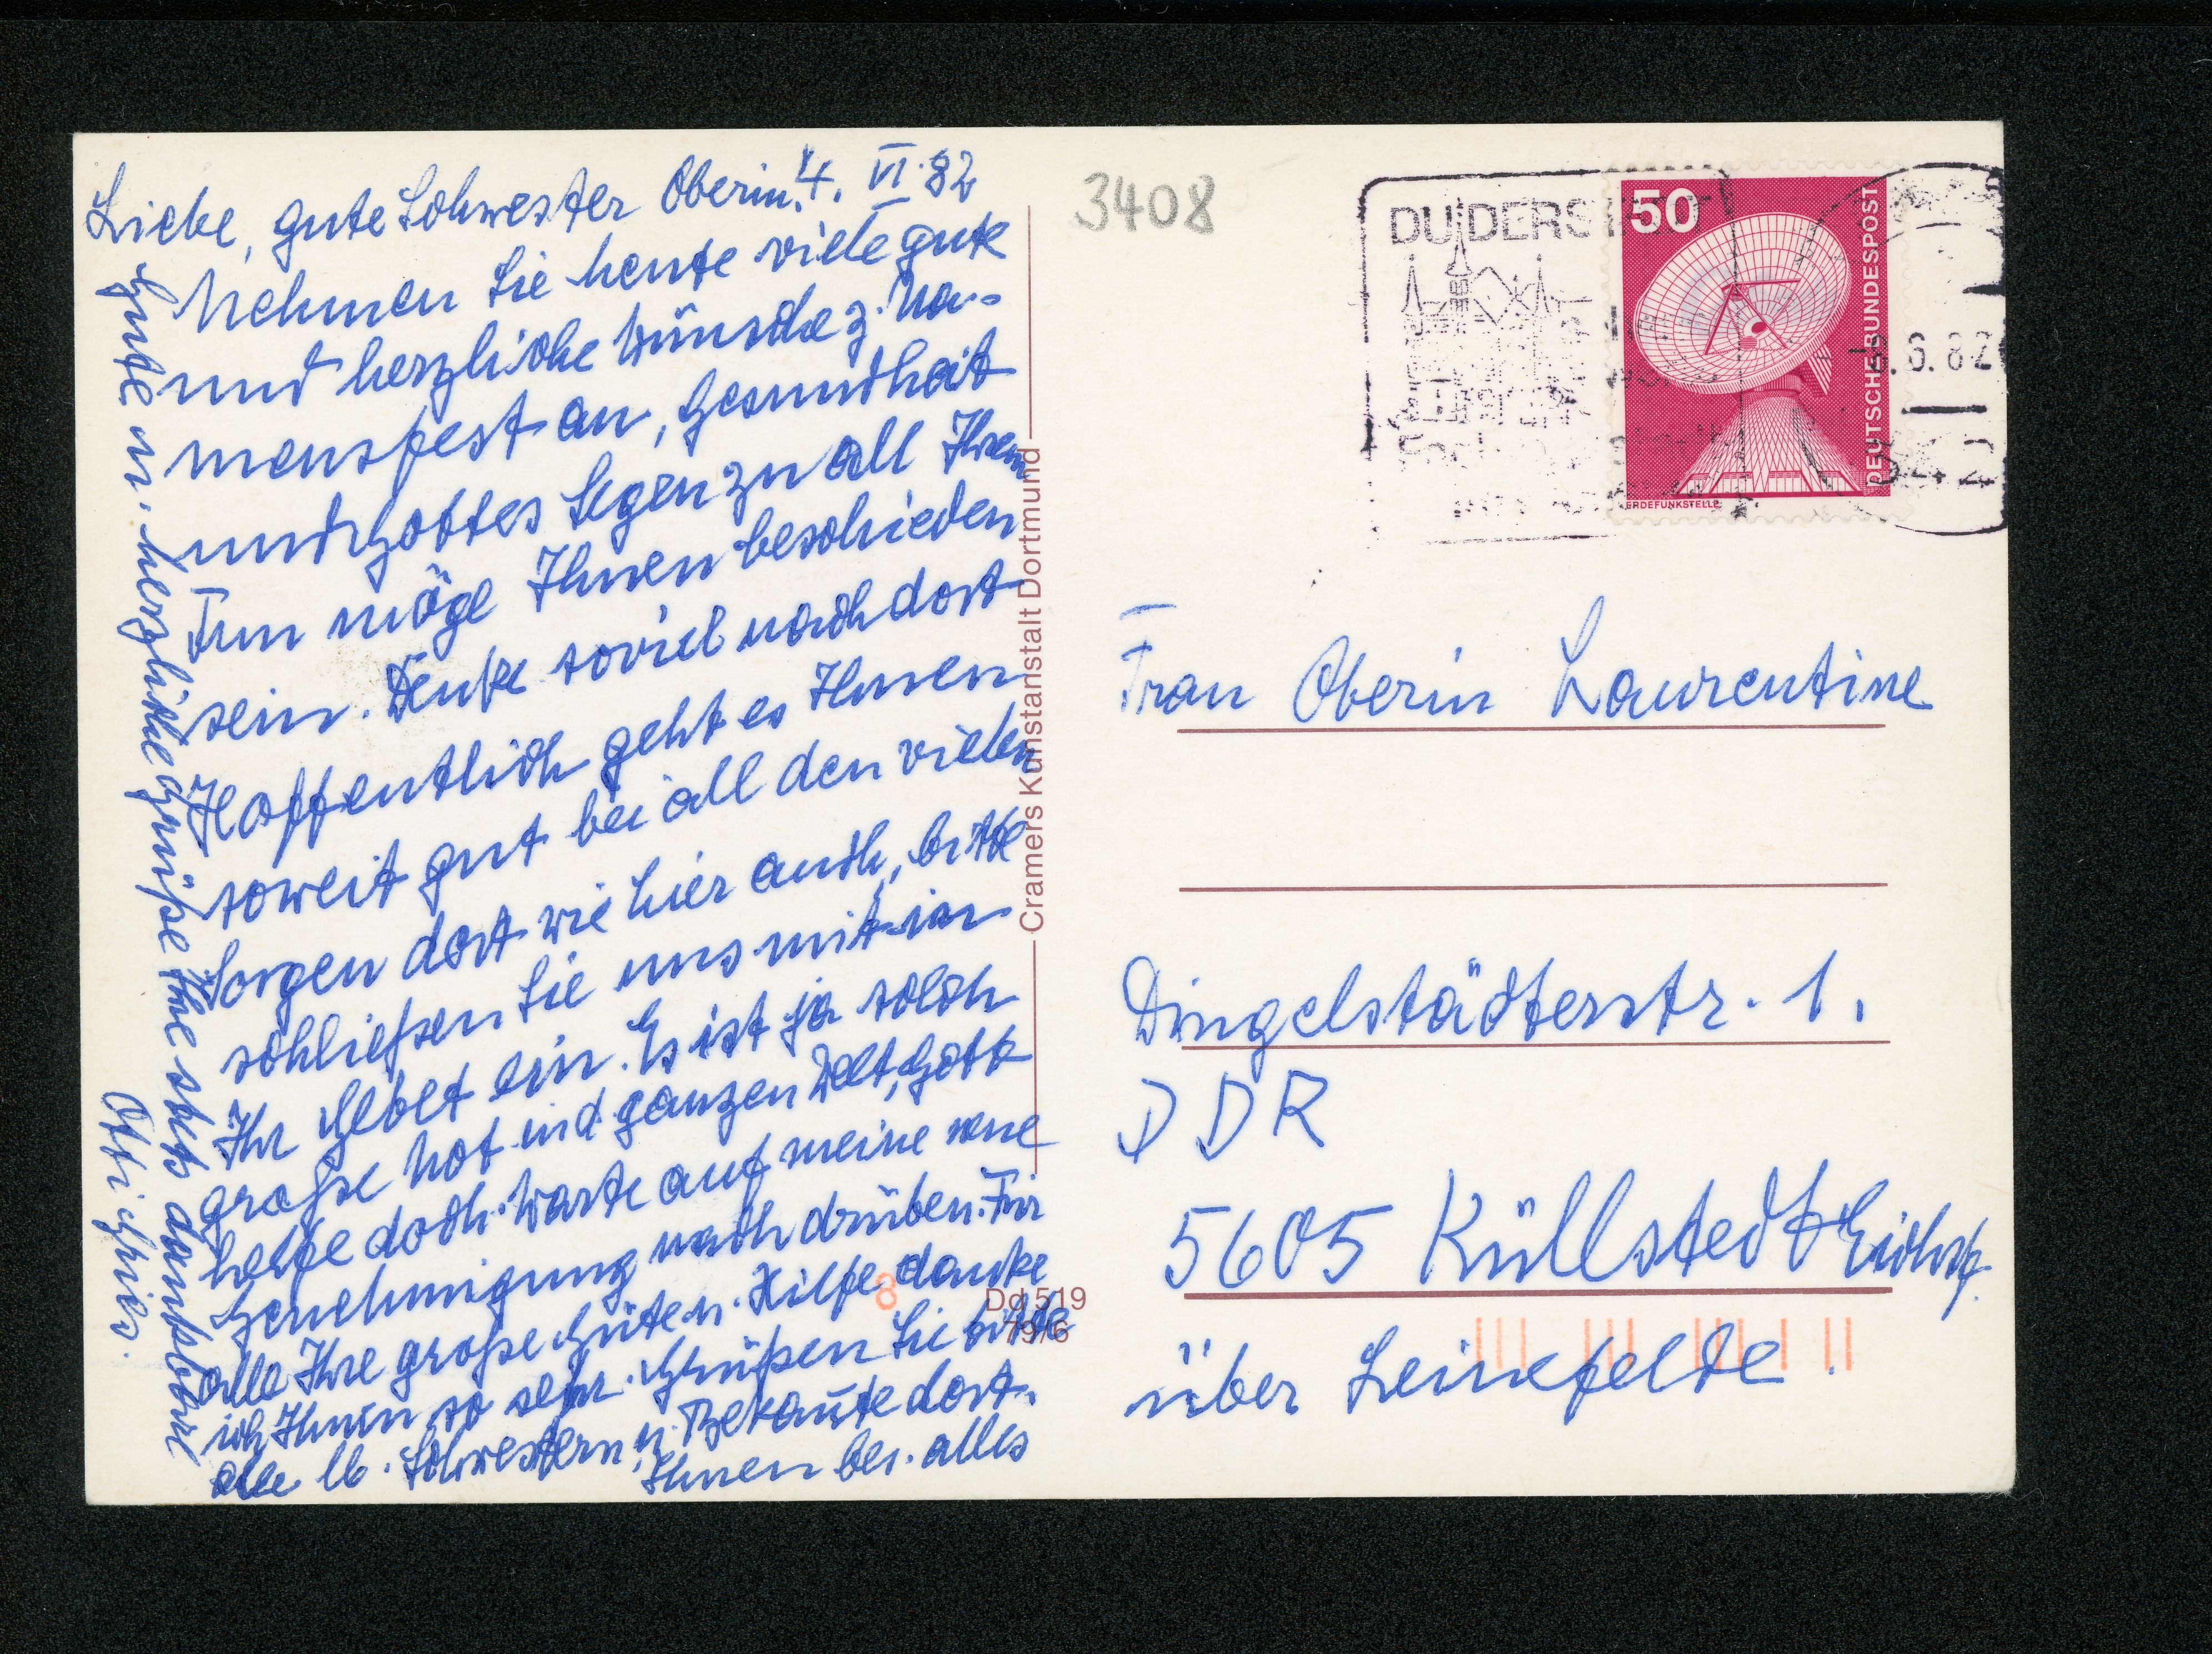 Liebe, gute Schwester Oberin! 4. VI. 82
Nehmen Sie heute viele gute
und herzliche Wünsche z. Na-
mensfest an, Gesundheit
und Gottes Segen zu all Ihrem
Tun möge Ihnen beschieden
sein. Denke soviel nach dort
Hoffentlich geht es Ihnen
soweit gut bei all den vielen
Sorgen dort wie hier auch, bitte
schließen Sie uns mit in
Ihr Gebet ein. Es ist ja solch
große Not in d ganzen Welt, Gott
helfe doch. Warte auf meine neue
Genehmigung nach drüben. Für
alle Ihre große Güte u. Hilfe danke
ich Ihnen so sehr. Grüßen Sie bitte
alle lb. Schwestern u. Bekannte dort.
Ihnen bes. alles
Gute u. herzliche Grüße Ihre stets dankbare
Cramers Kunstanstalt Dortmund
Dd 519
79/6
8
3408
DUDERST
50
DEUTSCHE BUNDESPOST
ERDEFUNKSTELLE
.6.82
Frau Oberin Laurentine
Dingelstädterstr. 1.
DDR
5605 Küllstedt Eichsf.
über Leinefelde.